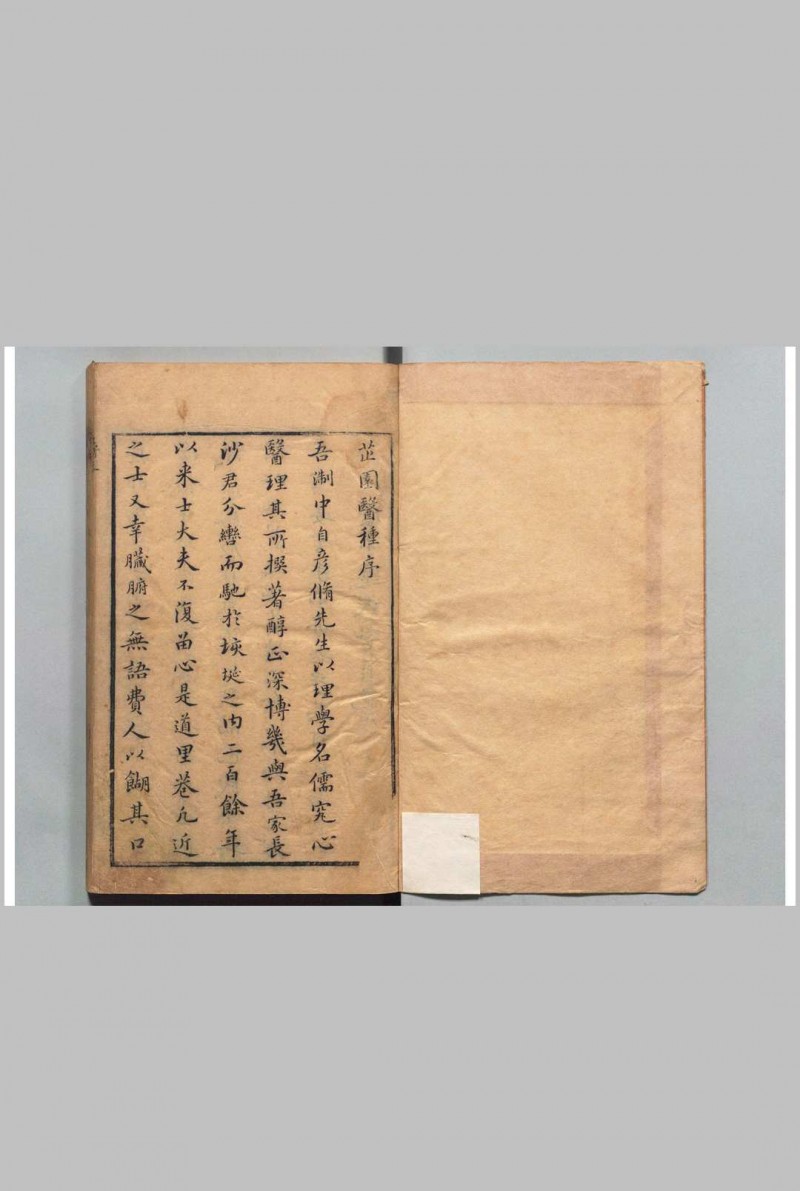 芷園醫種序
吾淛中自彦脩先生以理學名儒究心
醫理其所撰著醇正深博幾與吾家長
沙君分轡而馳於垓埏之内二百餘年
以来士大夫不復留心是道里巷凡近
之士又幸臟腑之無語費人以餬其口